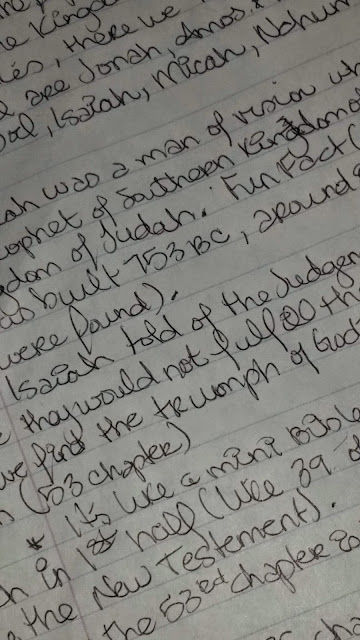 the Kingdo
ies, there we
l are Jonah Amos.
Isaiah, Micah, Nahum
ah was a man of vision wh
rophet of Southern Kingdom
dom of Judah. Fun Fact (
as built 753 BC, around
were found).
Isaiah told of the Judgem
they would not fulfill th
we find the triumph of God
n (53 chapter)
* It's like a mini Bible
h in 1st half (like 39 o
the New Testement).
the 53rd chapter is